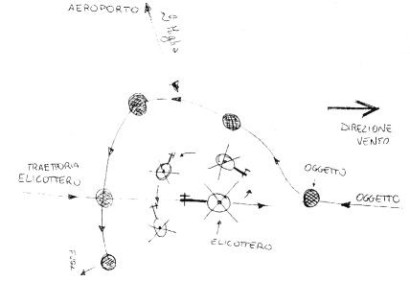 AEROPORTO
DIREZIONE
VENTO
TRAETTORIA
ELICOTTERO
OGGETTO
OGGETTO
ELICOTTERO